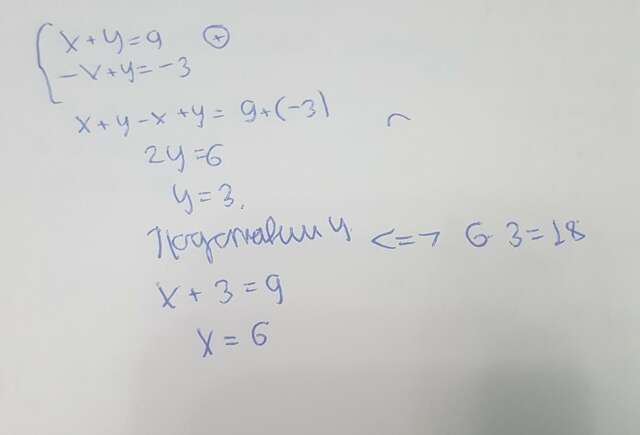 x+y=9 ⊕
-x+y=-3
x+y-x+y=9+(-3)
2y=6
y=3.
Подставим y <=> 6 3=18
x+3=9
x=6